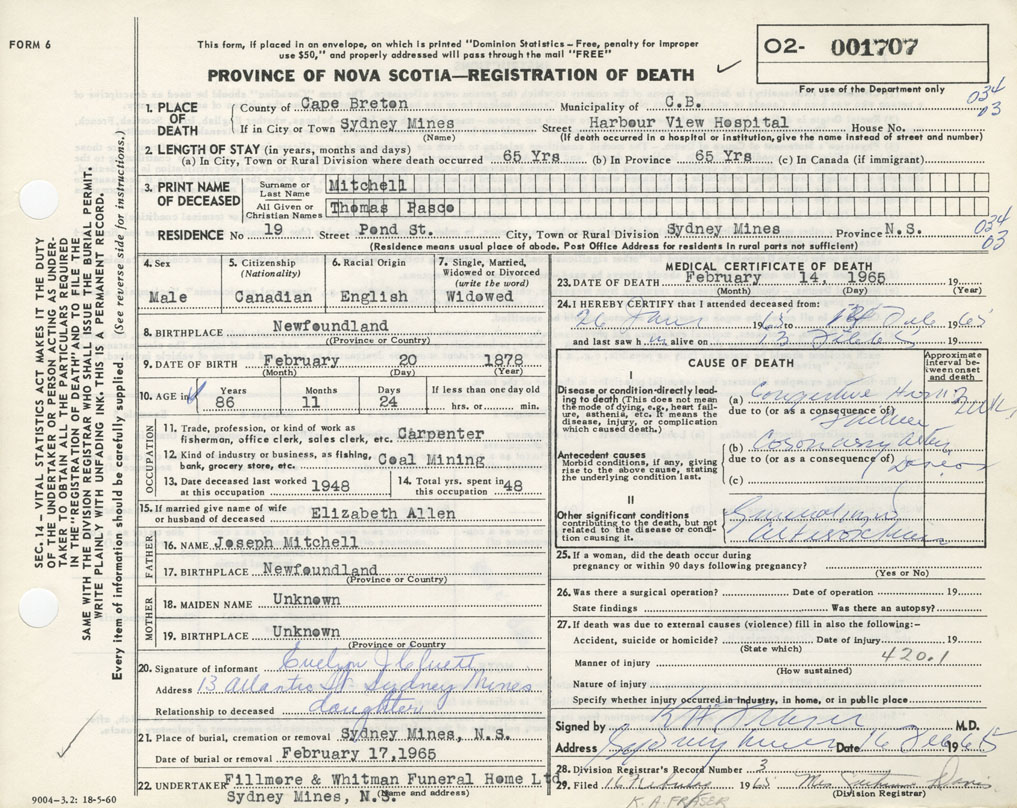 FORM 6
This form, if placed in an envelope, on which is printed "Dominion Statistics – Free, penalty for improper
use $50," and properly addressed will pass through the mail "FREE"
PROVINCE OF NOVA SCOTIA—REGISTRATION OF DEATH ✓
02- 001707
For use of the Department only
034
03
1. PLACE OF DEATH { County of Cape Breton Municipality of C.B.
If in City or Town Sydney Mines Street Harbour View Hospital House No.
(Name) (If death occurred in a hospital or institution, give the name instead of street and number)
2. LENGTH OF STAY (in years, months and days)
(a) In City, Town or Rural Division where death occurred 65 Yrs (b) In Province 65 Yrs (c) In Canada (if immigrant)
3. PRINT NAME OF DECEASED { Surname or Last Name Mitchell
All Given or Christian Names Thomas Pasco
RESIDENCE No 19 Street Pond St. City, Town or Rural Division Sydney Mines Province N.S.
034
03
(Residence means usual place of abode. Post Office Address for residents in rural parts not sufficient)
4. Sex
Male
5. Citizenship
(Nationality)
Canadian
6. Racial Origin
English
7. Single, Married,
Widowed or Divorced
(write the word)
Widowed
8. BIRTHPLACE Newfoundland
((Province or Country)
9. DATE OF BIRTH February 20 1878
(Month) (Day) (Year)
10. AGE in { Years Months Days If less than one day old
86 11 24 hrs. or min.
OCCUPATION
11. Trade, profession, or kind of work as
fisherman, office clerk, sales clerk, etc. Carpenter
12. Kind of industry or business, as fishing,
bank, grocery store, etc. Coal Mining
13. Date deceased last worked
at this occupation 1948
14. Total yrs. spent in
this occupation 48
15. If married give name of wife
or husband of deceased Elizabeth Allen
FATHER
16. NAME Joseph Mitchell
17. BIRTHPLACE Newfoundland
(Province or Country)
MOTHER
18. MAIDEN NAME Unknown
19. BIRTHPLACE Unknown
(Province or Country
20. Signature of informant Evelyn J Cluett
Address 13 Atlantic St Sydney Mines
Relationship to deceased daughter
21. Place of burial, cremation or removal Sydney Mines, N.S.
Date of burial or removal February 17,1965
22. UNDERTAKER Fillmore & Whitman Funeral Home Ltd
Sydney Mines, N.S. (Name and address)
MEDICAL CERTIFICATE OF DEATH
23. DATE OF DEATH February 14, 1965 19
(Month) (Day) (Year)
24. I HEREBY CERTIFY that I attended deceased from:
26 Jan 1965 to Feb 1965
and last saw him alive on 13 Feb 65
CAUSE OF DEATH
Approximate
interval be-
tween onset
and death
I
Disease or condition directly lead-
ing to death (This does not mean
the mode of dying, e.g., heart fail-
ure, asthenia, etc. It means the
disease, injury, or complication
which caused death.)
(a) Congestive Heart
Failure
due to (or as a consequence of)
Antecedent causes
Morbid conditions, if any, giving
rise to the above cause, stating
the underlying condition last.
(b) Coronary artery
disease
due to (or as a consequence of)
(c)
II
Other significant conditions
contributing to the death, but not
related to the disease or condi-
tion causing it.
Generalized
25. If a woman, did the death occur during
pregnancy or within 90 days following pregnancy?
(Yes or No)
26. Was there a surgical operation? Date of operation 19
State findings Was there an autopsy?
27. If death was due to external causes (violence) fill in also the following:–
Accident, suicide or homicide? Date of injury 19
(State which)
420.1
Manner of injury
(How sustained)
Nature of injury
Specify whether injury occurred in industry, in home, or in public place
Signed by K A Fraser M.D.
Address Sydney Mines Date 16 Feb 1965
28. Division Registrar's Record Number 3
29. Filed 16 1965
(Division Registrar)
K. A. FRASER
SEC. 14 – VITAL STATISTICS ACT MAKES IT THE DUTY
OF THE UNDERTAKER OR PERSON ACTING AS UNDER-
TAKER TO OBTAIN ALL THE PARTICULARS REQUIRED
IN THE "REGISTRATION OF DEATH" AND TO FILE THE
SAME WITH THE DIVISION REGISTRAR WHO SHALL ISSUE THE BURIAL PERMIT.
WRITE PLAINLY WITH UNFADING INK. THIS IS A PERMANENT RECORD.
Every item of information should be carefully supplied. (See reverse side for instructions.)
9004-3.2: 18-5-60